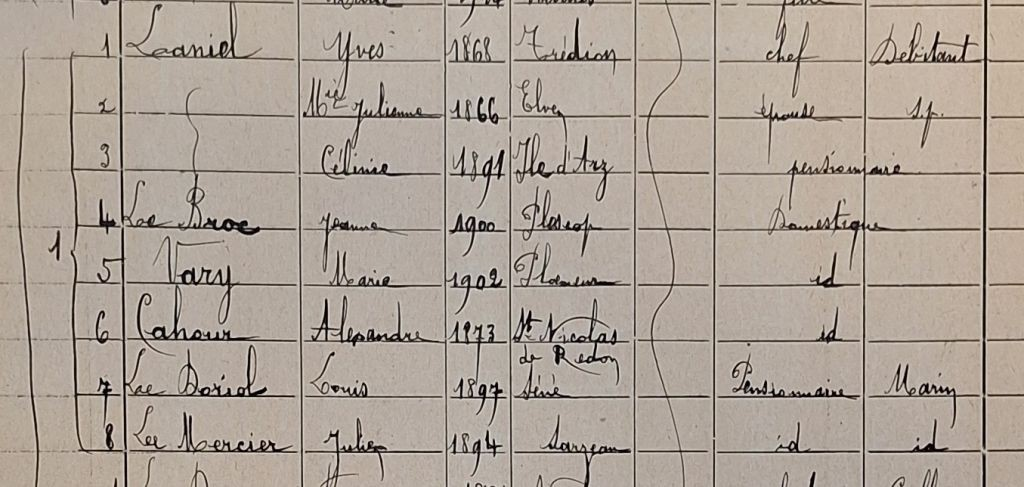 1 Laaniel Yves 1868 Trédion chef Débitant
2 Mie Julienne 1866 Elven épouse s.p.
3 Célinie 1891 Ile d'Arz pensionnaire
4 Le Broc Jeanne 1900 Plescop Domestique
1 5 Vary Marie 1902 Ploemeur id
6 Cahour Alexandre 1873 St Nicolas id
de Redon
7 Le Doriol Louis 1897 Séné Pensionnaire Marin
8 Le Mercier Julien 1894 Sarzeau id id